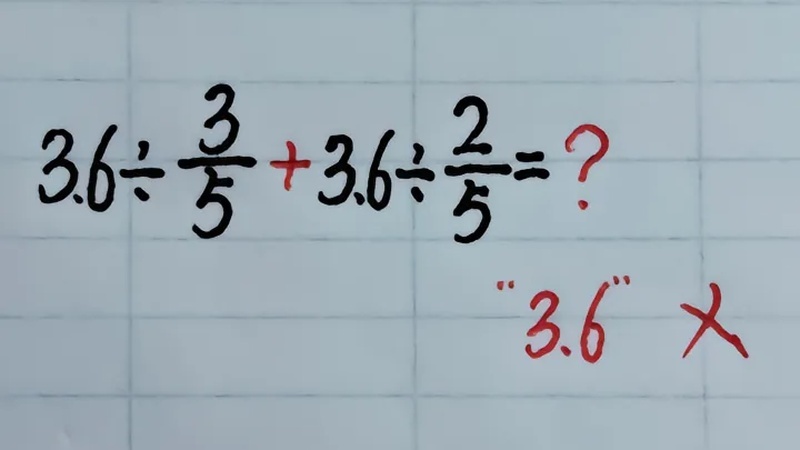 3.6 ÷ 3/5 + 3.6 ÷ 2/5 = ?
"3.6" ×